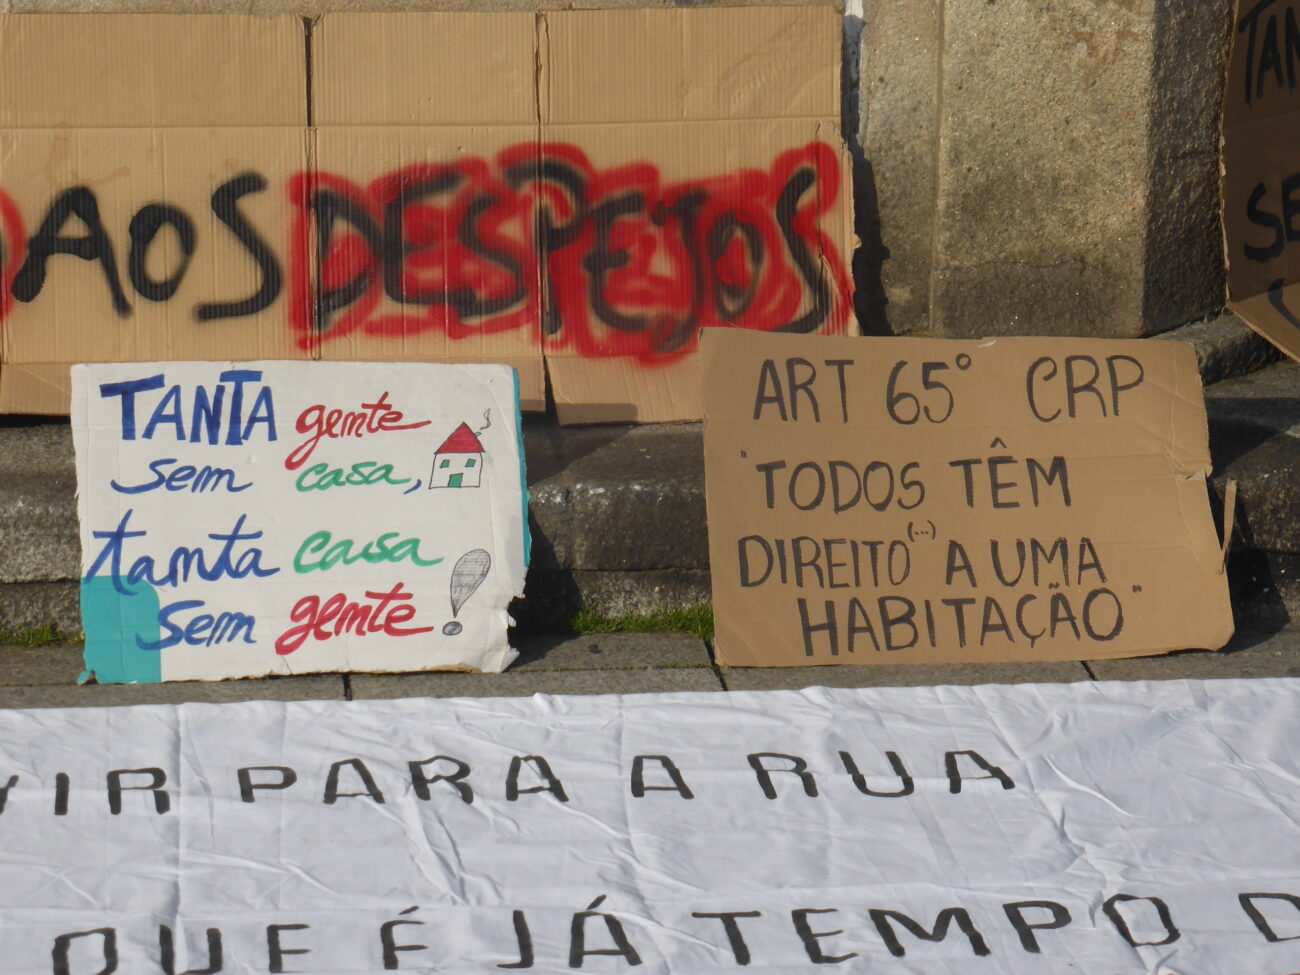 AOS DESPEJOS
TANTA gente
sem casa,
tanta casa
sem gente!
ART 65° CRP
"TODOS TÊM
DIREITO (...) A UMA
HABITAÇÃO"
VIR PARA A RUA
QUE É JÁ TEMPO D